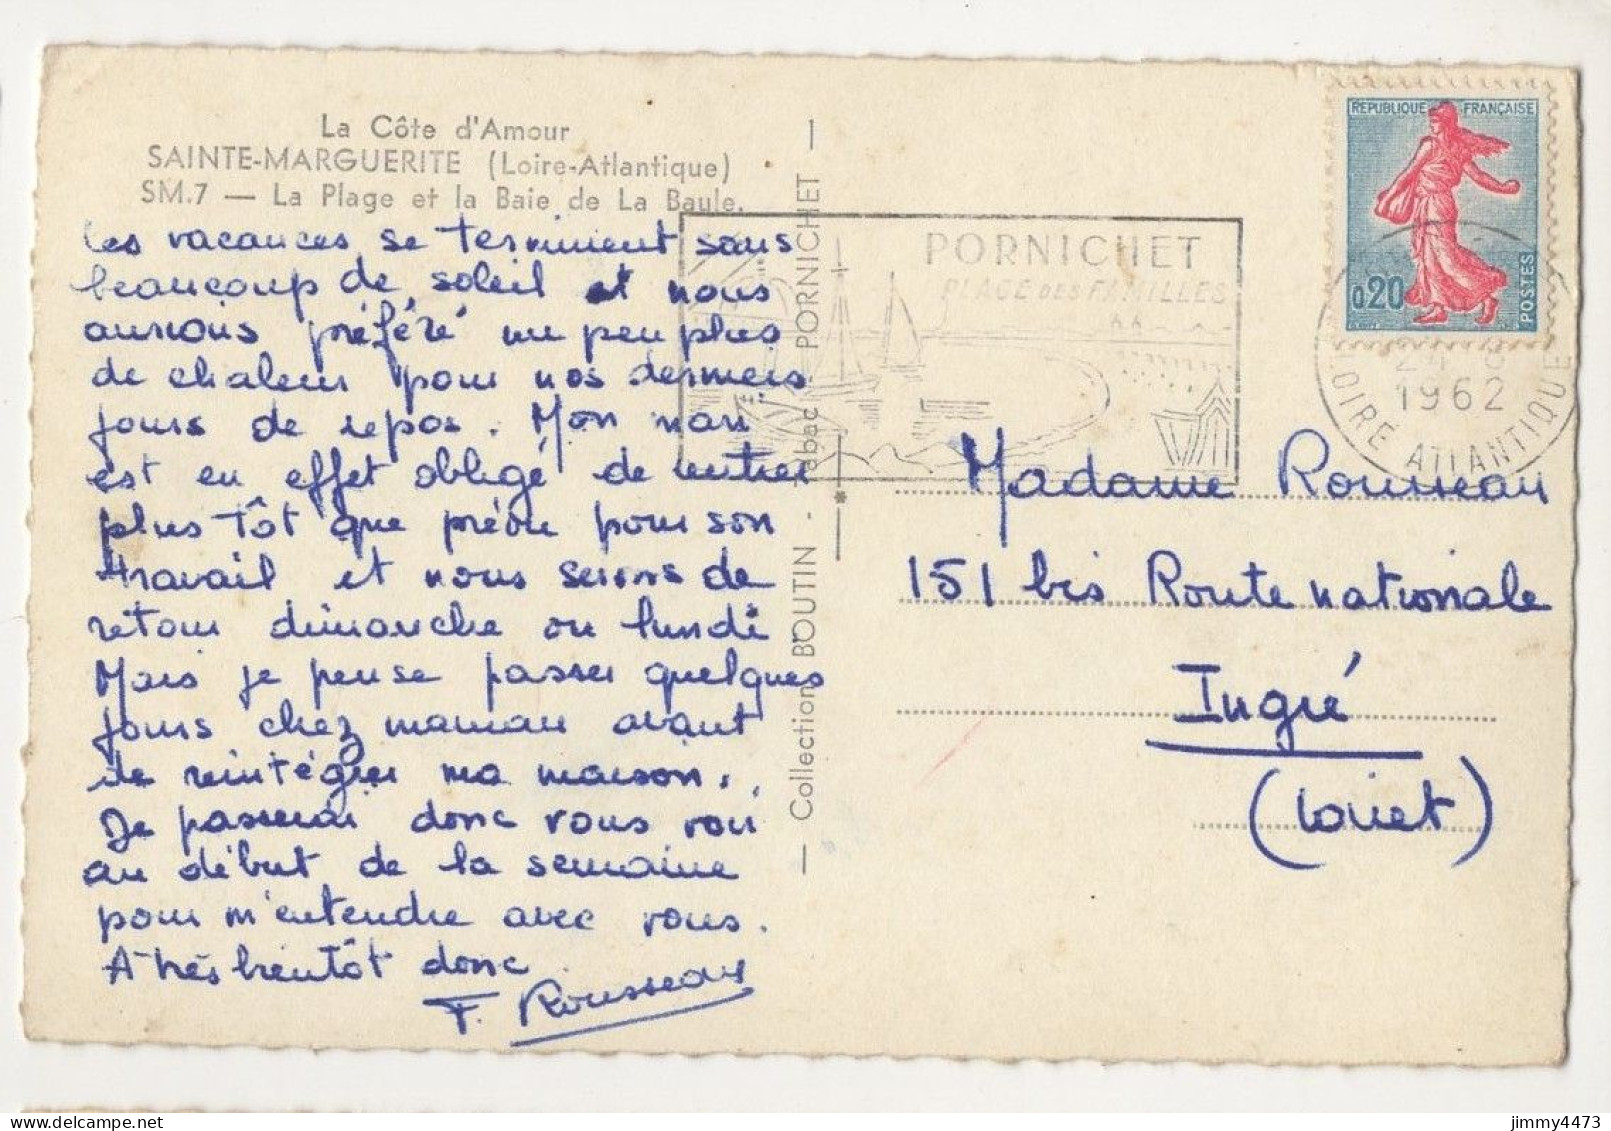 La Côte d'Amour
SAINTE-MARGUERITE (Loire-Atlantique)
SM.7 — La Plage et la Baie de La Baule.
Les vacances se terminent sans
beaucoup de soleil et nous
aurions préféré un peu plus
de chaleur pour nos derniers
jours de repos. Mon mari
est en effet obligé de rentrer
plus tôt que prévu pour son
travail et nous serons de
retour dimanche ou lundi
Mais je pense passer quelques
jours chez maman avant
de réintégrer ma maison.
Je passerai donc vous voir
au début de la semaine
pour m'entendre avec vous.
A très bientôt donc
F. Rousseau
— Collection BOUTIN - Tabac PORNICHET —
PORNICHET
PLAGE DES FAMILLES
REPUBLIQUE FRANÇAISE
0,20
POSTES
24-8
1962
LOIRE ATLANTIQUE
Madame Rousseau
151 bis Route nationale
Ingré
(Loiret)
jimmy4473